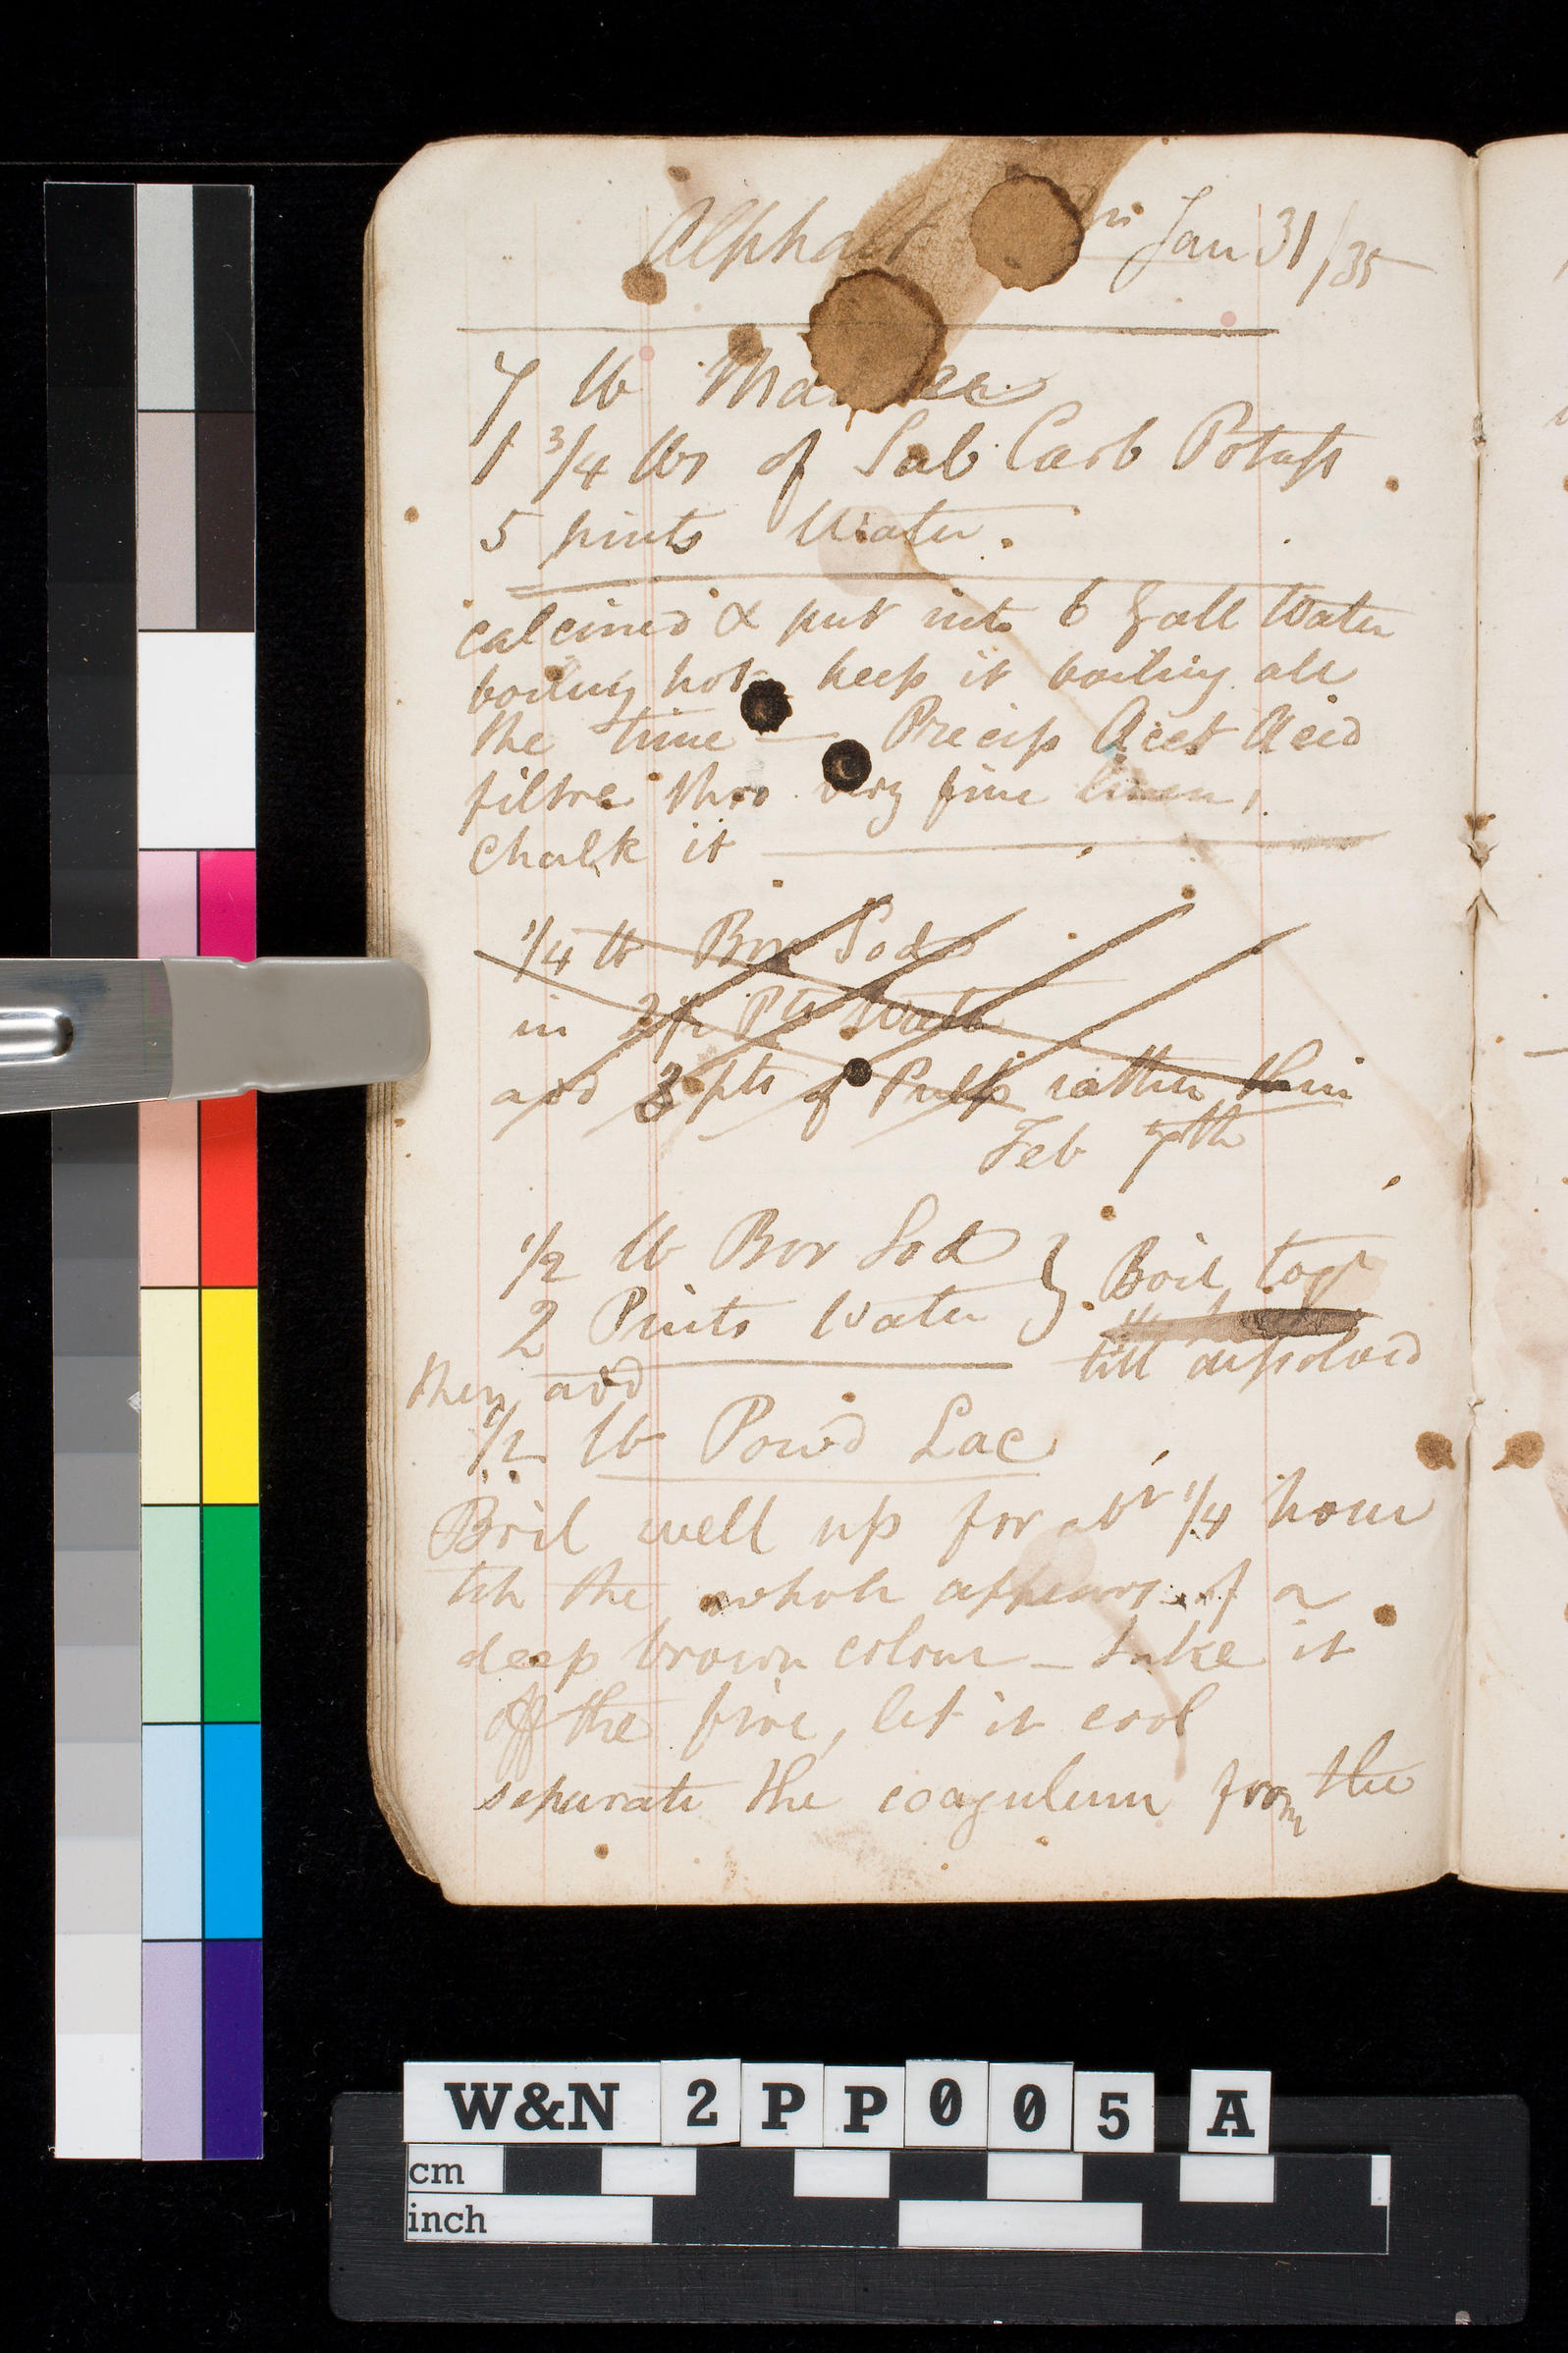 Alphalt Jan 31/35
7 lb
1 3/4 lbs of Sub Carb Potash
5 pints Water.
calcined & put into 6 Gall Water
boiling hot keep it boiling all
the time — Precip Acet Acid
filtre thro very fine linen,
Chalk it
1/4 lb Bor Soda
in Pts Water
add 3 pts of Pulp rather thin
Feb 7th
1/2 lb Bor Sod } Boil togr
2 Pints Water
till dissolved
then add
1/2 lb Powd Lac
Boil well up for abt 1/4 hour
till the whole appears of a
deep brown colour — take it
off the fire, let it cool
separate the coagulum from the
W&N 2PP005 A
cm
inch